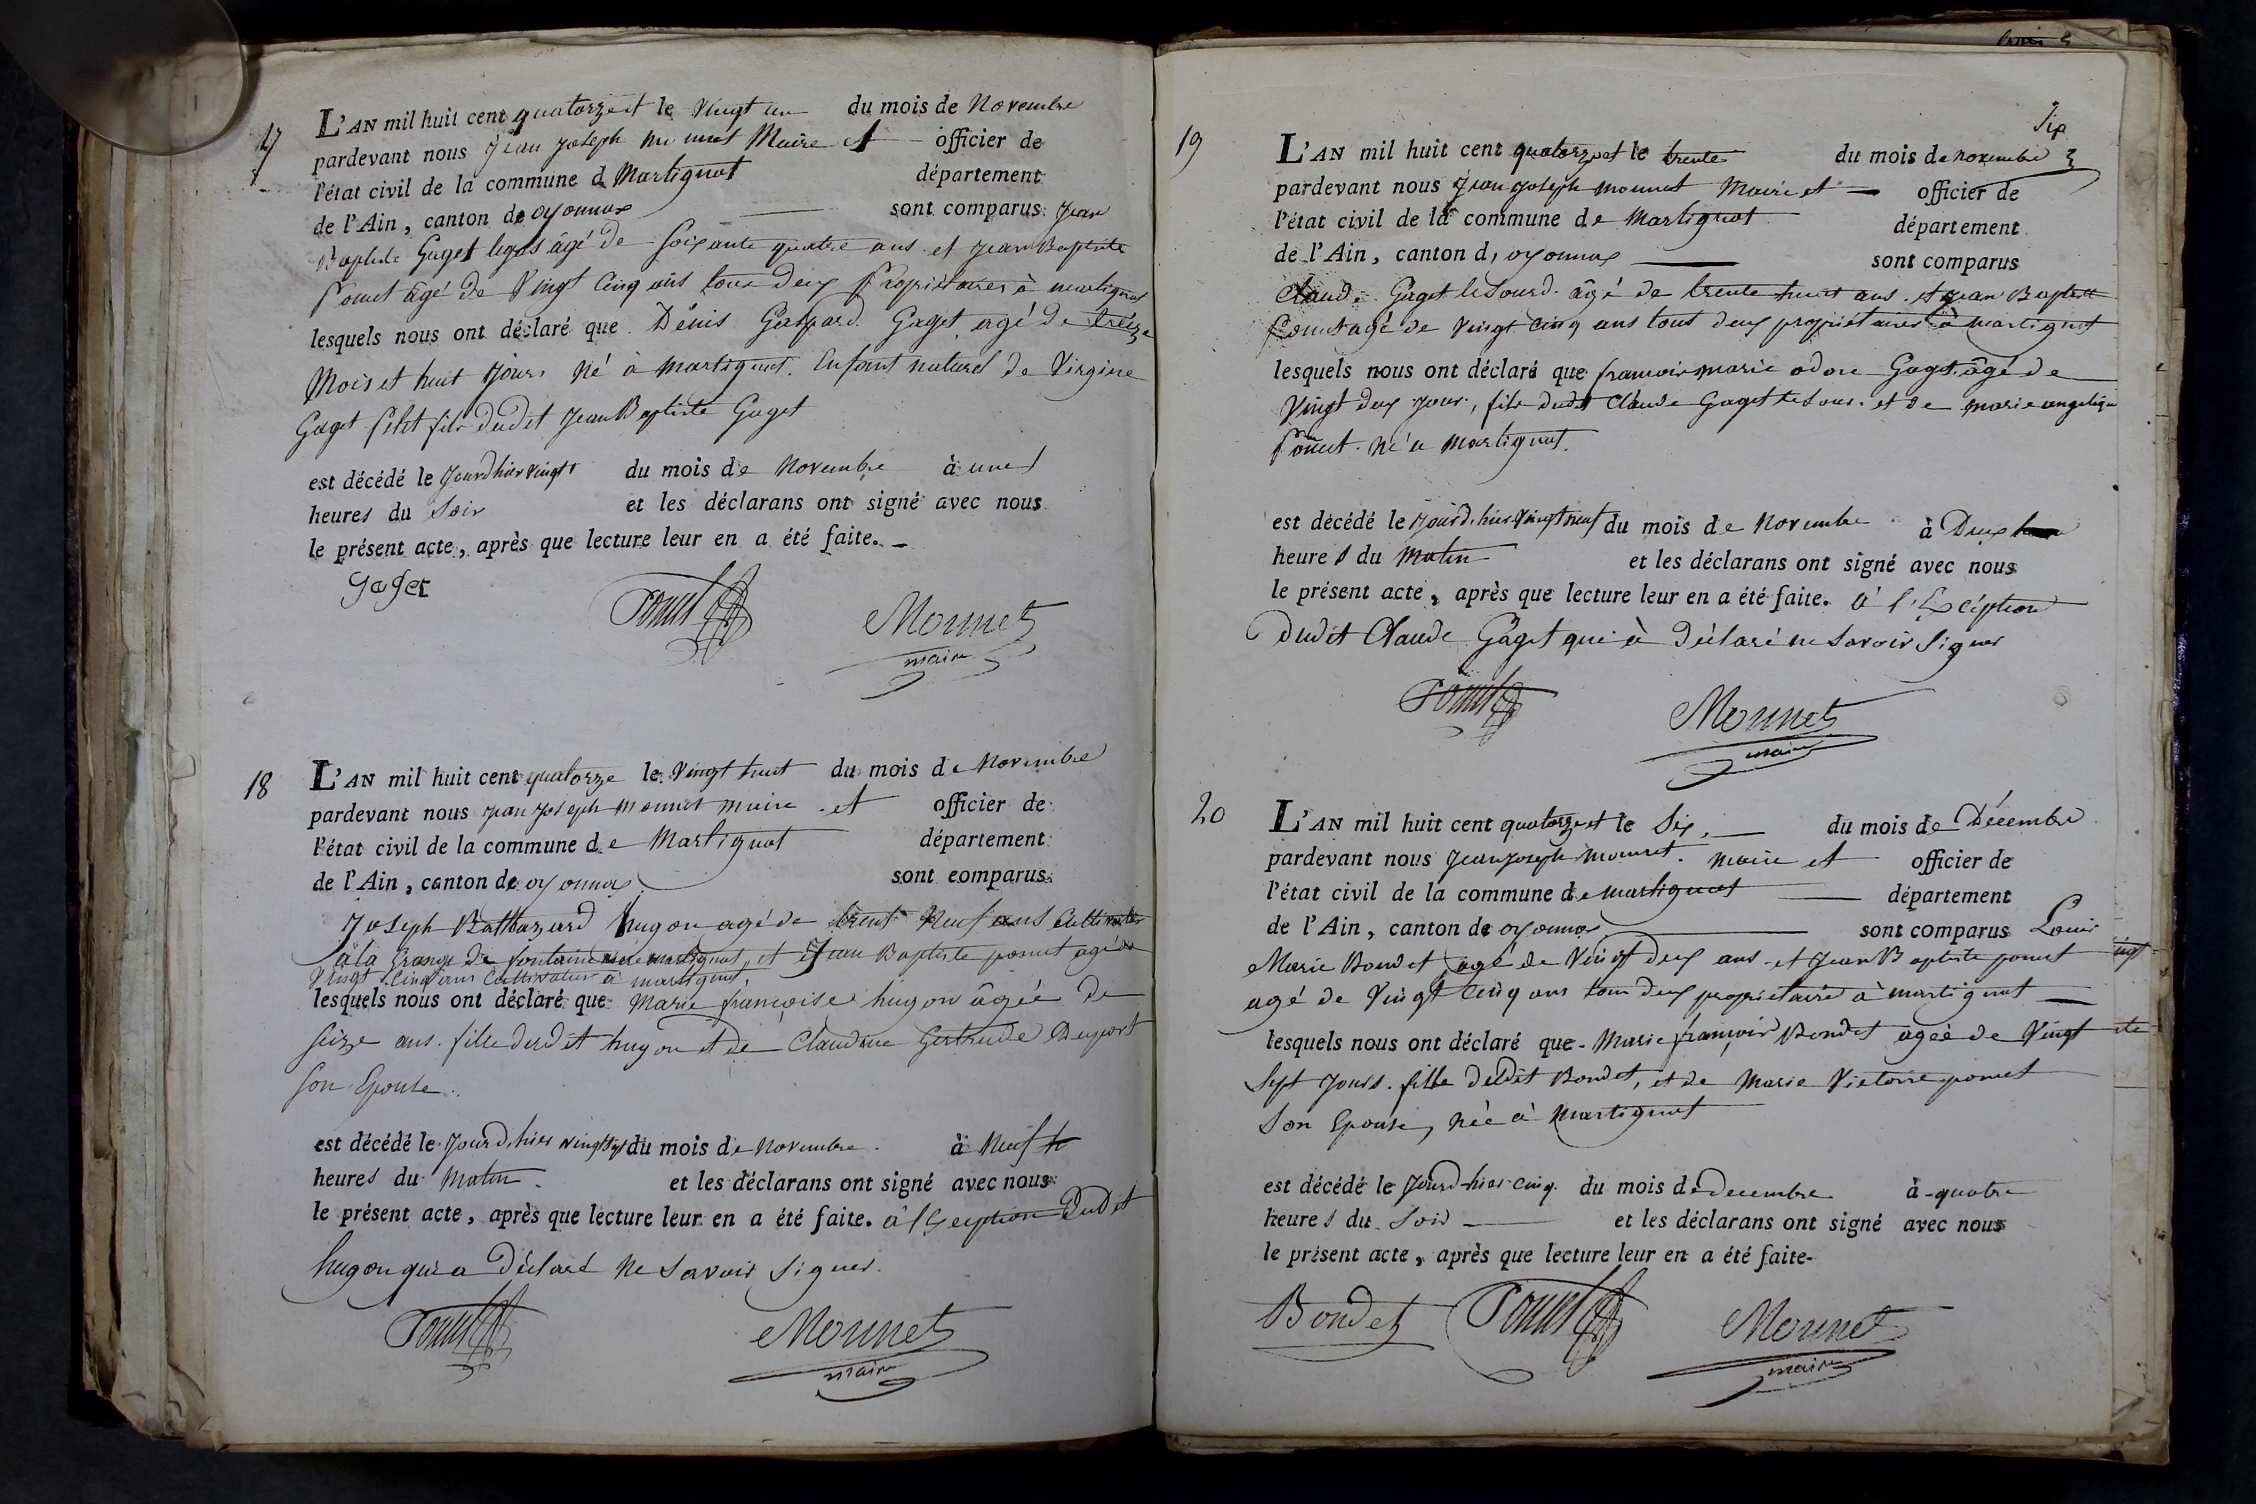 17
L'AN mil huit cent quatorze et le Vingt un du mois de Novembre
pardevant nous Jean Joseph Monnet Maire et officier de
l'état civil de la commune de Martignat département
de l'Ain, canton de oyonnax sont comparus Jean
Baptiste Gaget âgé de soixante quatre ans et Jean Baptiste
Ponnet âgé de Vingt Cinq ans tous deux Propriétaires à martignat
lesquels nous ont déclaré que Dénis Gaspard Gaget agé de treize
Mois et huit Jours Né à martignat. Enfant naturel de Virginie
Gaget petit fils dudit Jean Baptiste Gaget
est décédé le Jourdhier vingt du mois de Novembre à une
heures du Soir et les déclarans ont signé avec nous
le présent acte, après que lecture leur en a été faite.
Gaget Ponnet Monnet
maire
18
L'AN mil huit cent quatorze le Vingt huit du mois de Novembre
pardevant nous Jean Joseph Monnet maire et officier de
l'état civil de la commune de Martignat département
de l'Ain, canton de oyonnax sont comparus
Joseph Balthazard hugon agé de trente Neuf ans Cultivateur
à la Grange de fontaine martignat, et Jean Baptiste ponnet agé de
Vingt Cinq ans Cultivateur à martignat
lesquels nous ont déclaré que Marie françoise hugon âgée de
seize ans. fille dudit hugon et de Claudine Gertrude Duport
son Epouse.
est décédé le Jourd'hier vingt sept du mois de Novembre à Neuf h
heures du Matin et les déclarans ont signé avec nous
le présent acte, après que lecture leur en a été faite. à l'Exception Dudit
hugon qui a Déclaré Ne Savoir Signer.
Ponnet Monnet
maire
Six
19
L'AN mil huit cent quatorze et le trente du mois de novembre
pardevant nous Jean Joseph Monnet Maire et officier de
l'état civil de la commune de Martignat département
de l'Ain, canton d'oyonnax sont comparus
Claude Gaget le Sourd âgé de trente huit ans et Jean Baptiste
Ponnet agé de Vingt Cinq ans tous deux propriétaires à martignat
lesquels nous ont déclaré que françois marie Gaget âgé de
Vingt deux Jours, fils dudit Claude Gaget le Sour. et de marie angelique
Ponnet Né à Martignat.
est décédé le Jourd'hier Vingt neuf du mois de Novembre à Deux
heures du Matin et les déclarans ont signé avec nous
le présent acte, après que lecture leur en a été faite. à l'Exception
Dudit Claude Gaget qui à Déclaré ne Savoir Signer
Ponnet Monnet
maire
20
L'AN mil huit cent quatorze et le Six du mois de Décembre
pardevant nous Jean Joseph Monnet maire et officier de
l'état civil de la commune de martignat département
de l'Ain, canton de oyonnax sont comparus Louis
Marie Bondet agé de Vingt Deux ans et Jean Baptiste ponnet
agé de Vingt Cinq ans tous deux propriétaires à martignat
lesquels nous ont déclaré que Marie françoise Bondet agée de Vingt
Sept Jours. fille dudit Bondet, et de Marie Victoire ponnet
Son Epouse, née à Martignat
est décédé le Jourd-hier cinq du mois de Decembre à quatre
heures du Soir et les déclarans ont signé avec nous
le présent acte, après que lecture leur en a été faite.
Bondet Ponnet Monnet
maire